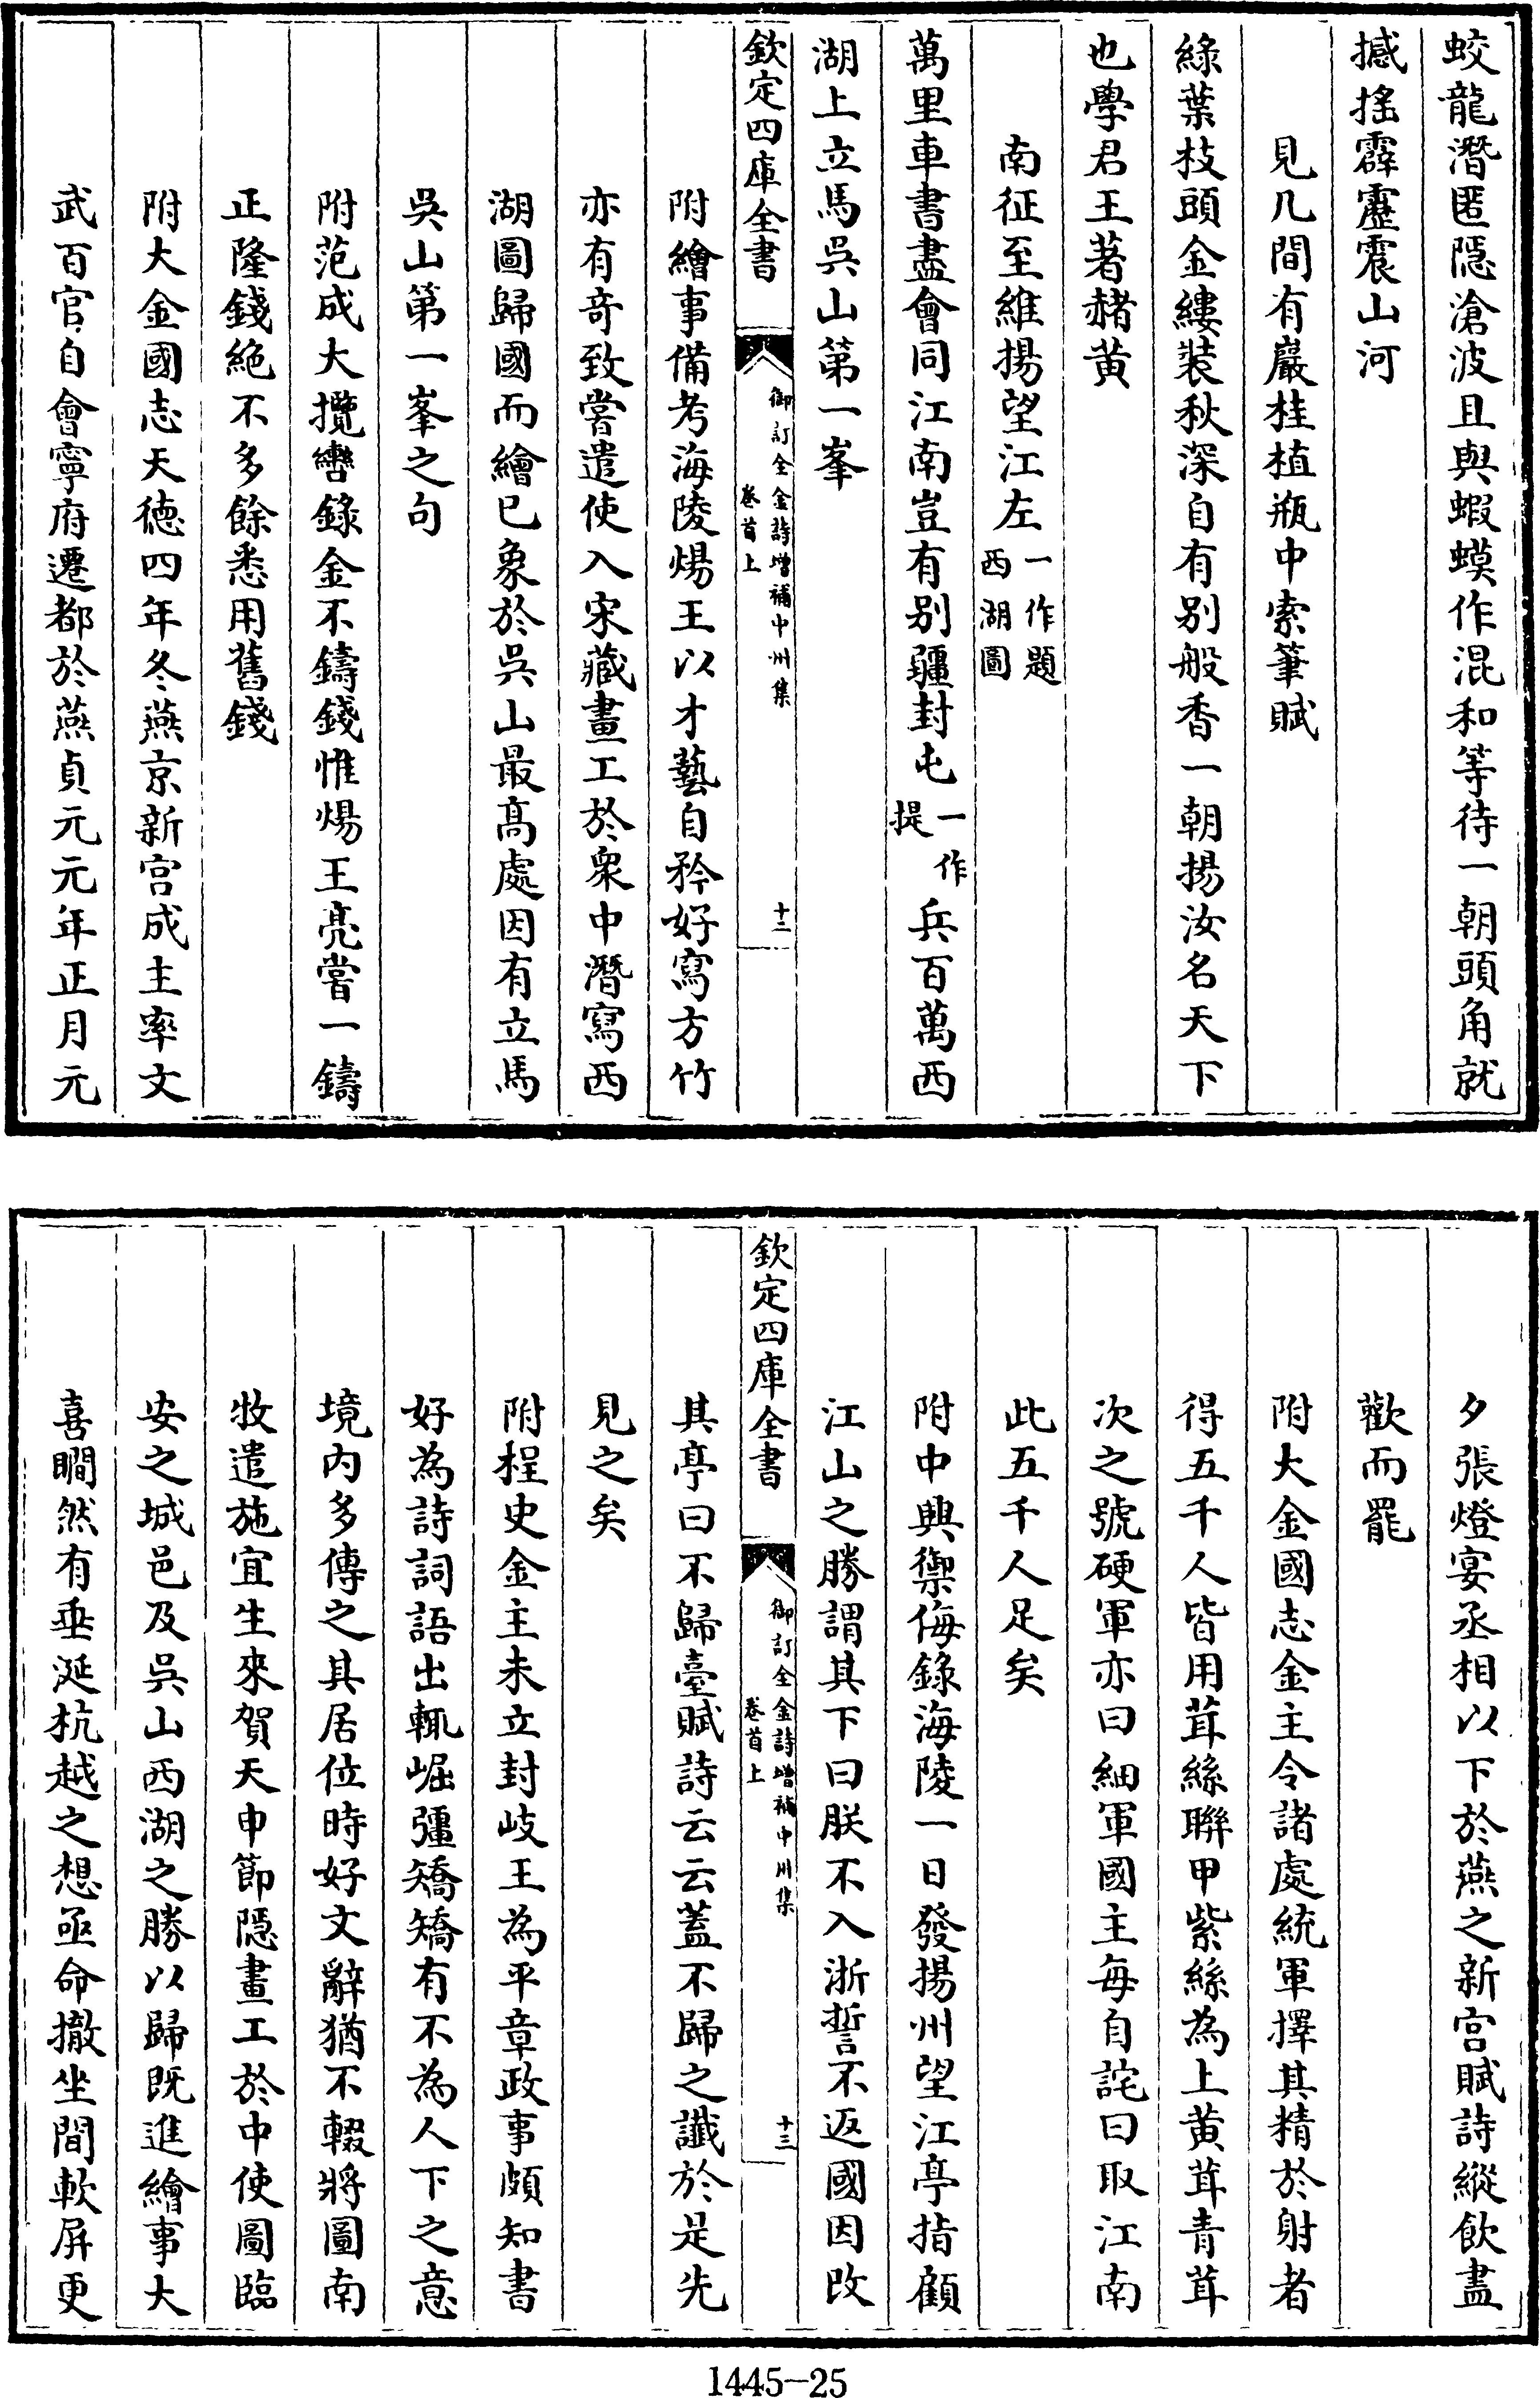 蛟龍潛匿隱滄波且與蝦蟆作混和等待一朝頭角就
撼搖霹靂震山河
見几間有巖桂植瓶中索筆賦
綠葉枝頭金縷装秋深自有别般香一朝揚汝名天下
也學君王著赭黄
南征至維揚望江左一作題西湖圖
萬里車書盡會同江南豈有别疆封屯一作提兵百萬西
湖上立馬吳山第一峯
欽定四庫全書
御訂全金詩增補中州集
卷首上
十二
附繪事備考海陵煬王以才藝自矜好寫方竹
亦有竒致嘗遣使入宋藏畫工於衆中潛寫西
湖圖歸國而繪已象於吳山最髙處因有立馬
吳山第一峯之句
附范成大攬轡錄金不鑄錢惟煬王亮嘗一鑄
正隆錢絶不多餘悉用舊錢
附大金國志天德四年冬燕京新宫成主率文
武百官自會寧府遷都於燕貞元元年正月元
夕張燈宴丞相以下於燕之新宫賦詩縱飲盡
歡而罷
附大金國志金主令諸處統軍擇其精於射者
得五千人皆用茸絲聯甲紫絲為上黄茸青茸
次之號硬軍亦曰細軍國主每自詫曰取江南
此五千人足矣
附中興禦侮錄海陵一日發揚州望江亭指顧
江山之勝謂其下曰朕不入浙誓不返國因改
欽定四庫全書
御訂全金詩增補中州集
卷首上
十三
其亭曰不歸臺賦詩云云蓋不歸之讖於是先
見之矣
附桯史金主未立封岐王為平章政事頗知書
好為詩詞語出輒崛彊矯矯有不為人下之意
境内多傳之其居位時好文辭猶不輟將圖南
牧遣施宜生來賀天申節隱畫工於中使圖臨
安之城邑及吳山西湖之勝以歸既進繪事大
喜瞯然有垂涎杭越之想亟命撤坐間軟屏更
1445-25